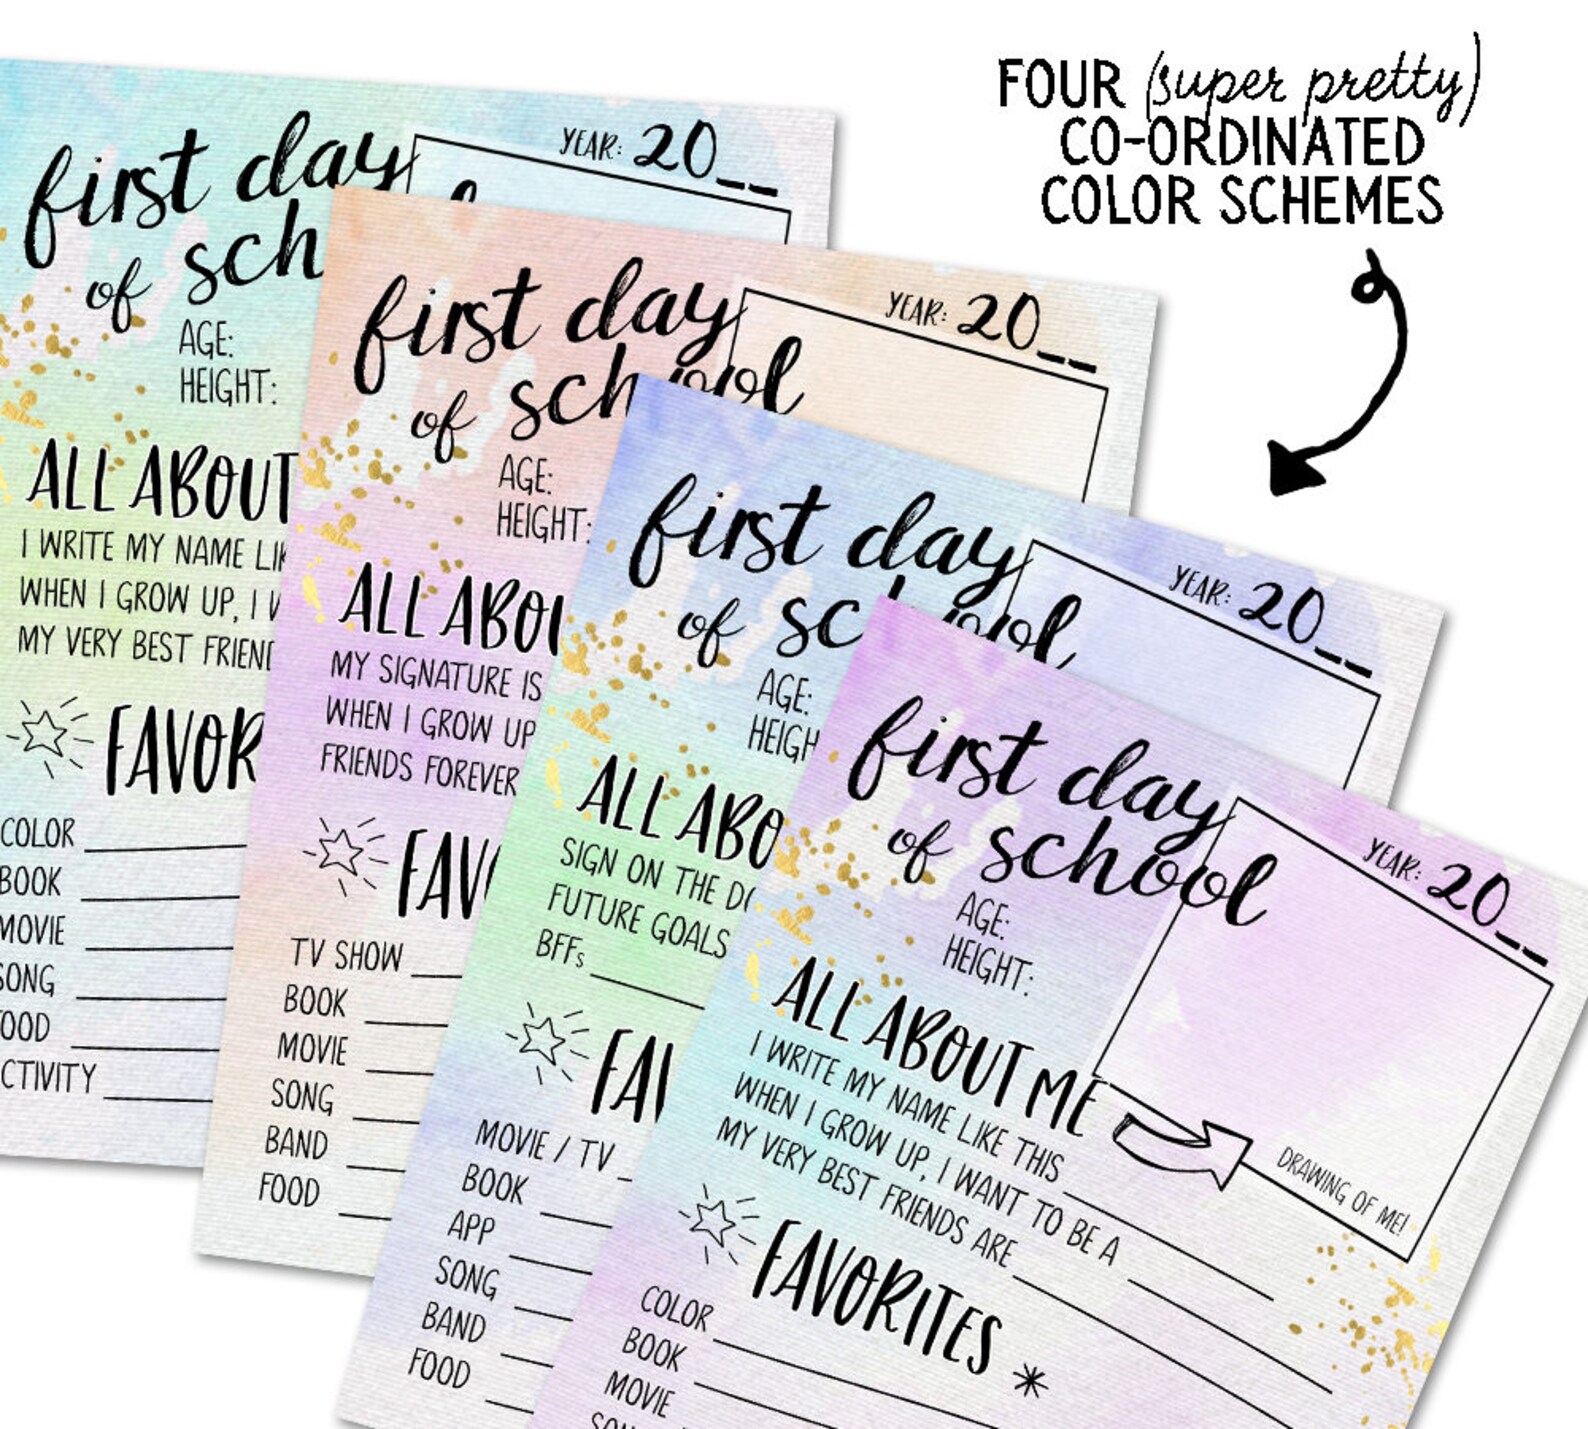 FOUR (super pretty)
CO-ORDINATED
COLOR SCHEMES
YEAR: 20__
first day
of sch
AGE:
HEIGHT:
ALL ABOUT
I WRITE MY NAME
WHEN I GROW UP, I
MY VERY BEST
COLOR
BOOK
MOVIE
SONG
YEAR: 20__
first day
of school
AGE:
HEIGHT:
ALL
MY SIGNATURE IS
WHEN I GROW UP
FRIENDS FOREVER
TV SHOW
BOOK
MOVIE
SONG
BAND
FOOD
YEAR: 20__
first day
of school
AGE:
ALL
SIGN ON THE
FUTURE GOALS
BFFs
MOVIE / TV
BOOK
APP
SONG
BAND
FOOD
YEAR: 20__
first day
of school
AGE:
HEIGHT:
ALL ABOUT ME
I WRITE MY NAME LIKE THIS
WHEN I GROW UP, I WANT TO BE A
MY VERY BEST FRIENDS ARE
DRAWING OF ME!
FAVORITES *
COLOR
BOOK
MOVIE